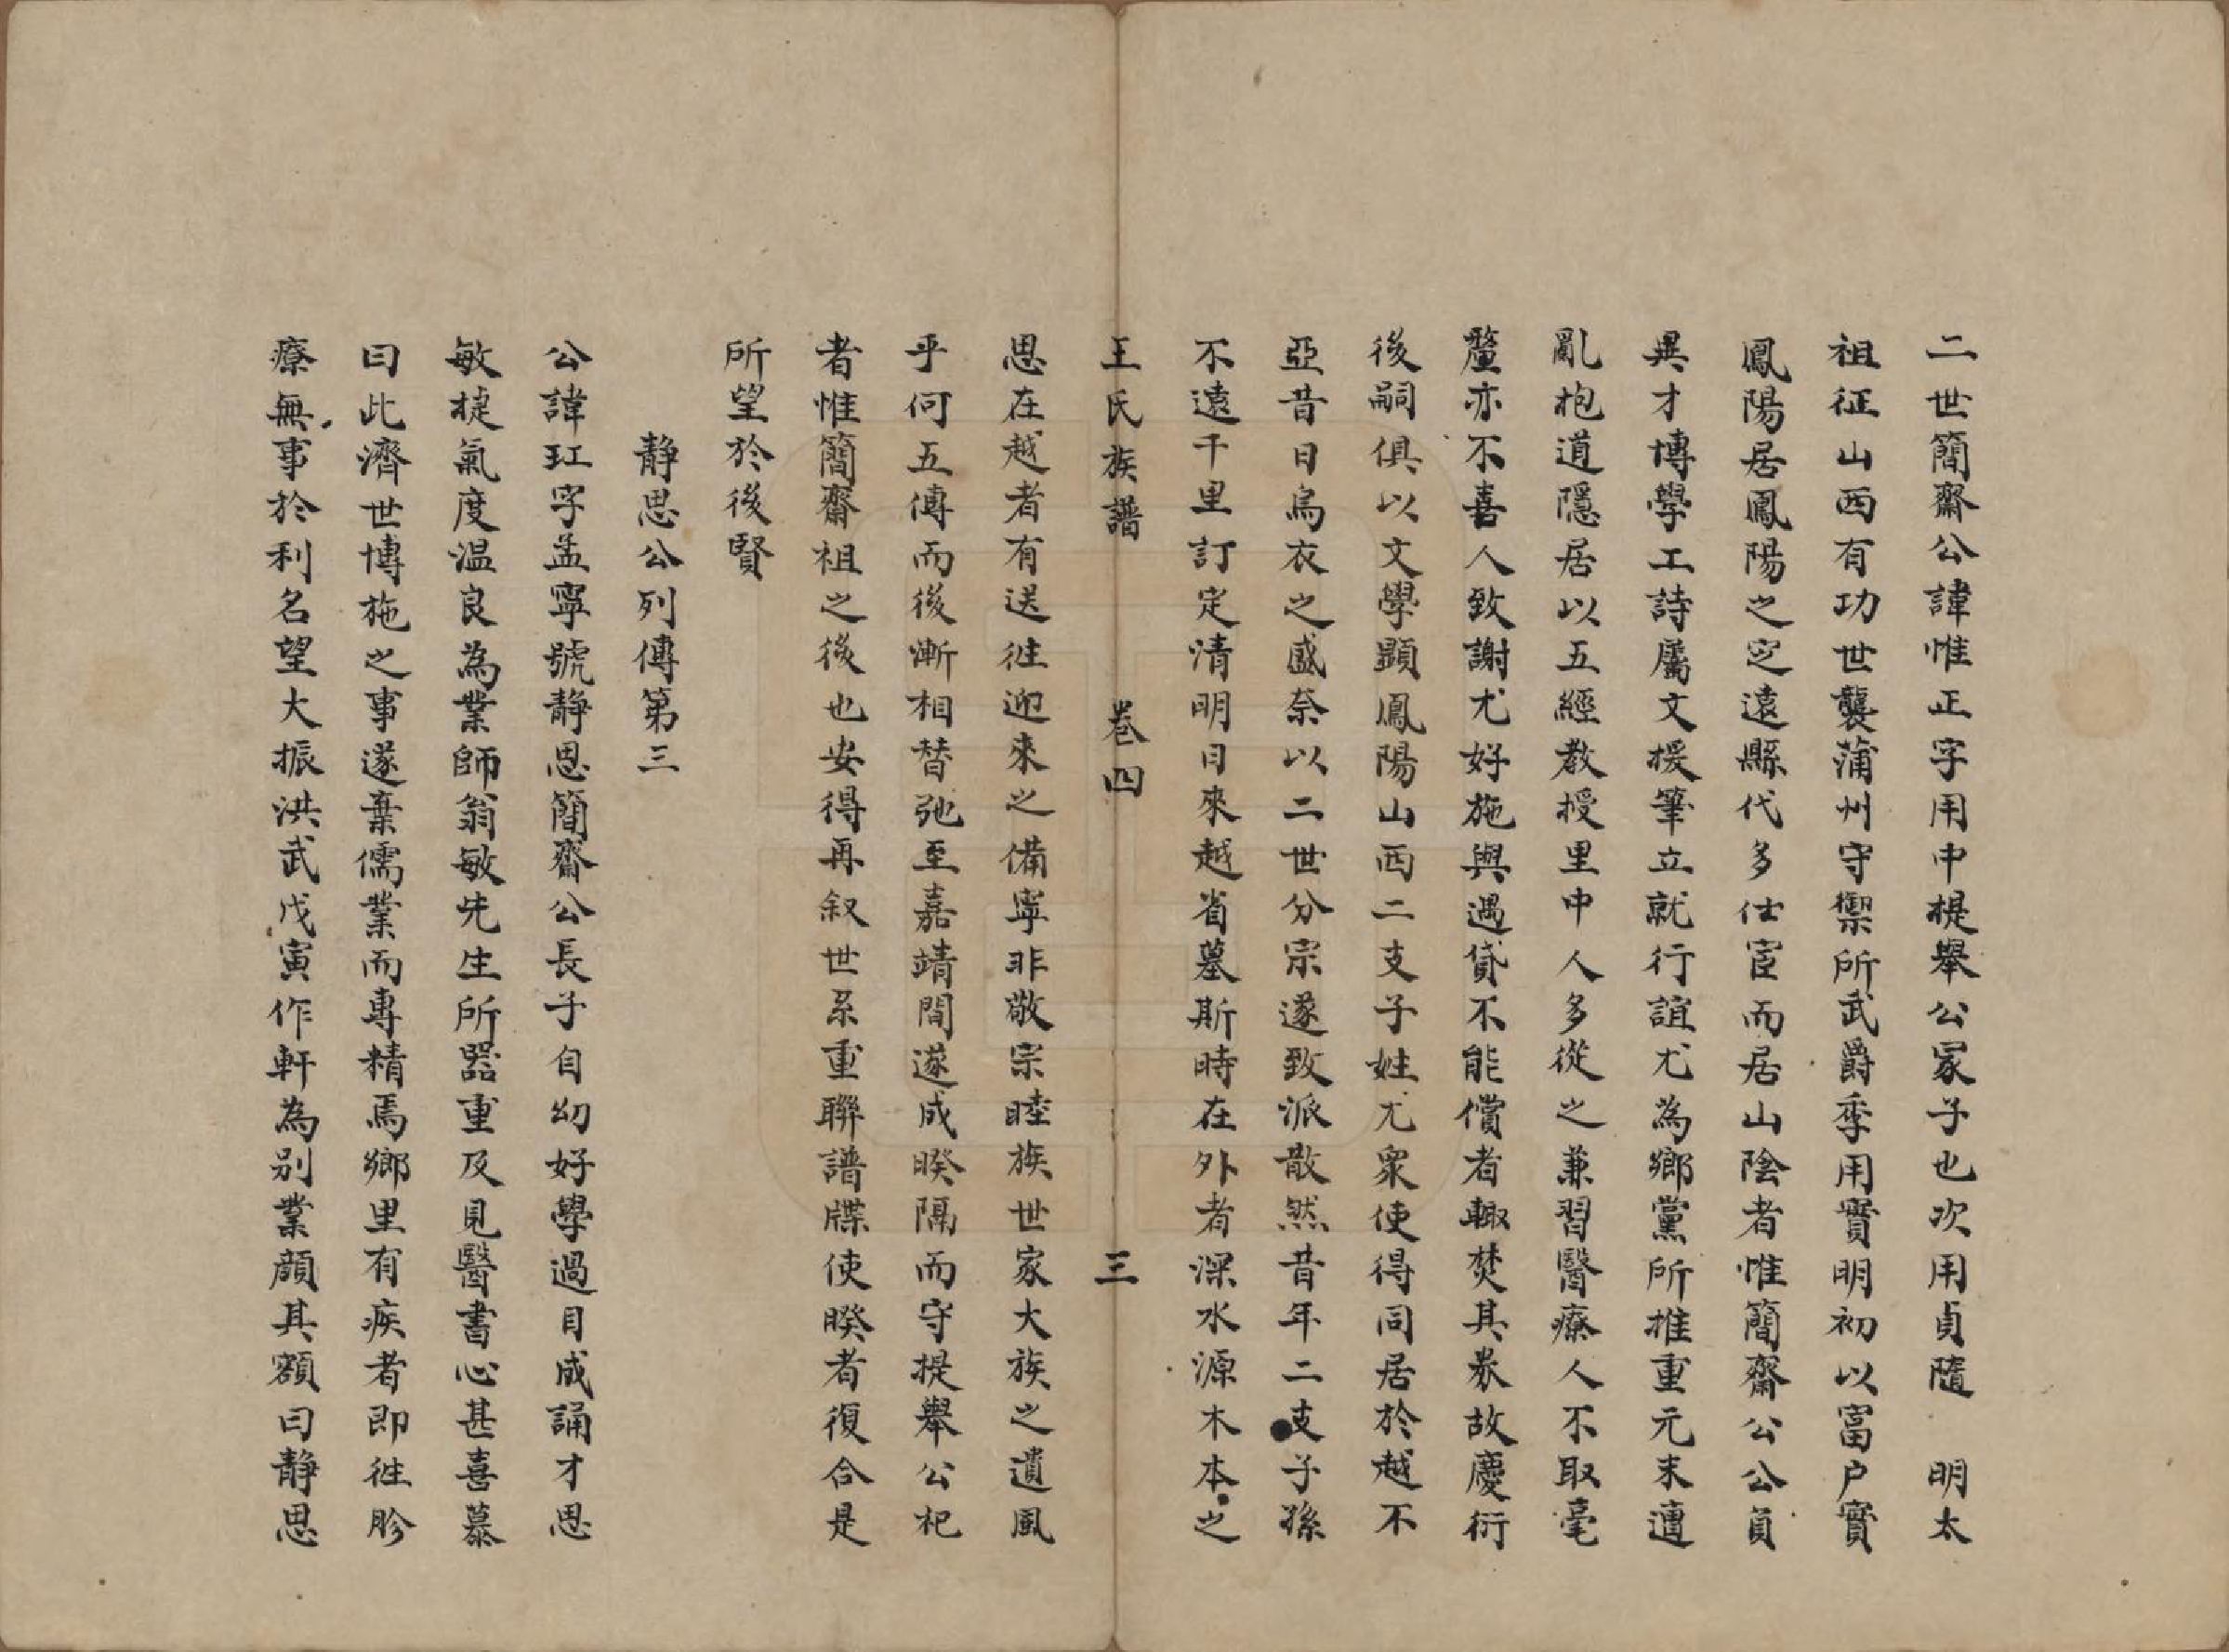 二世簡齋公諱惟正字用中提舉公冢子也次用貞隨　明太
祖征山西有功世襲蒲州守禦所武爵季用賓明初以富戶實
鳳陽居鳳陽之定遠縣代多仕宦而居山陰者惟簡齋公公負
異才博學工詩屬文援筆立就行誼尤為鄉黨所推重元末遭
亂抱道隱居以五經教授里中人多從之兼習醫療人不取毫
釐亦不喜人致謝尤好施與遇貸不能償者輙焚其券故慶衍
後嗣俱以文學顯鳳陽山西二支子姓尤衆使得同居於越不
亞昔日烏衣之盛奈以二世分宗遂致派散然昔年二支子孫
不遠千里訂定清明日來越省墓斯時在外者深水源木本之
王氏族譜　卷四　三
思在越者有送徃迎來之備寧非敬宗睦族世家大族之遺風
乎何五傳而後漸相替弛至嘉靖間遂成暌隔而守提舉公祀
者惟簡齋祖之後也安得再叙世系重聯譜牒使暌者復合是
所望於後賢
靜思公列傳第三
公諱玒字孟寧號靜思簡齋公長子自幼好學過目成誦才思
敏捷氣度温良為業師翁敏先生所器重及見醫書心甚喜慕
曰此濟世博施之事遂棄儒業而專精焉鄉里有疾者即徃胗
療無事於利名望大振洪武戊寅作軒為别業顔其額曰靜思